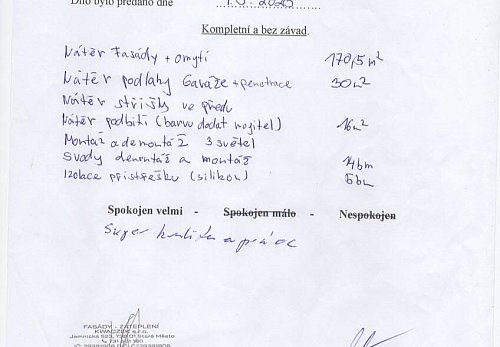 Dílo bylo předáno dne
Kompletní a bez závad.
Nátěr fasády + omytí 170,5 m²
Nátěr podlahy Garáže + penetrace 30 m²
Nátěr stříšky ve předu
Nátěr podbití (barvu dodat majitel) 16 m²
Montáž a demontáž 3 světel
Svody demontáž a montáž 14bm
Izolace přístřešku (silikon) 5bm
Spokojen velmi - Spokojen málo - Nespokojen
Super kvalita a práce
FASÁDY - ZATEPLENÍ
KWACZEK s.r.o.
Jamnická 523, 738 01 Staré Město